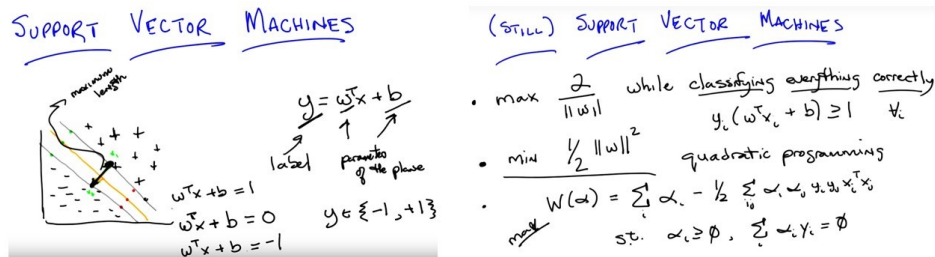 SUPPORT VECTOR MACHINES
maximum length
y = wᵀx + b
label
parameters of the plane
wᵀx + b = 1
wᵀx + b = 0
wᵀx + b = -1
y ∈ {-1, +1}
(STILL) SUPPORT VECTOR MACHINES
• max 2/||w|| while classifying everything correctly
yᵢ(wᵀxᵢ + b) ≥ 1 ∀ᵢ
• min 1/2 ||w||² quadratic programming
• max W(α) = Σᵢ αᵢ - 1/2 Σᵢⱼ αᵢ αⱼ yᵢ yⱼ xᵢᵀxⱼ
s.t. αᵢ ≥ 0, Σᵢ αᵢ yᵢ = 0